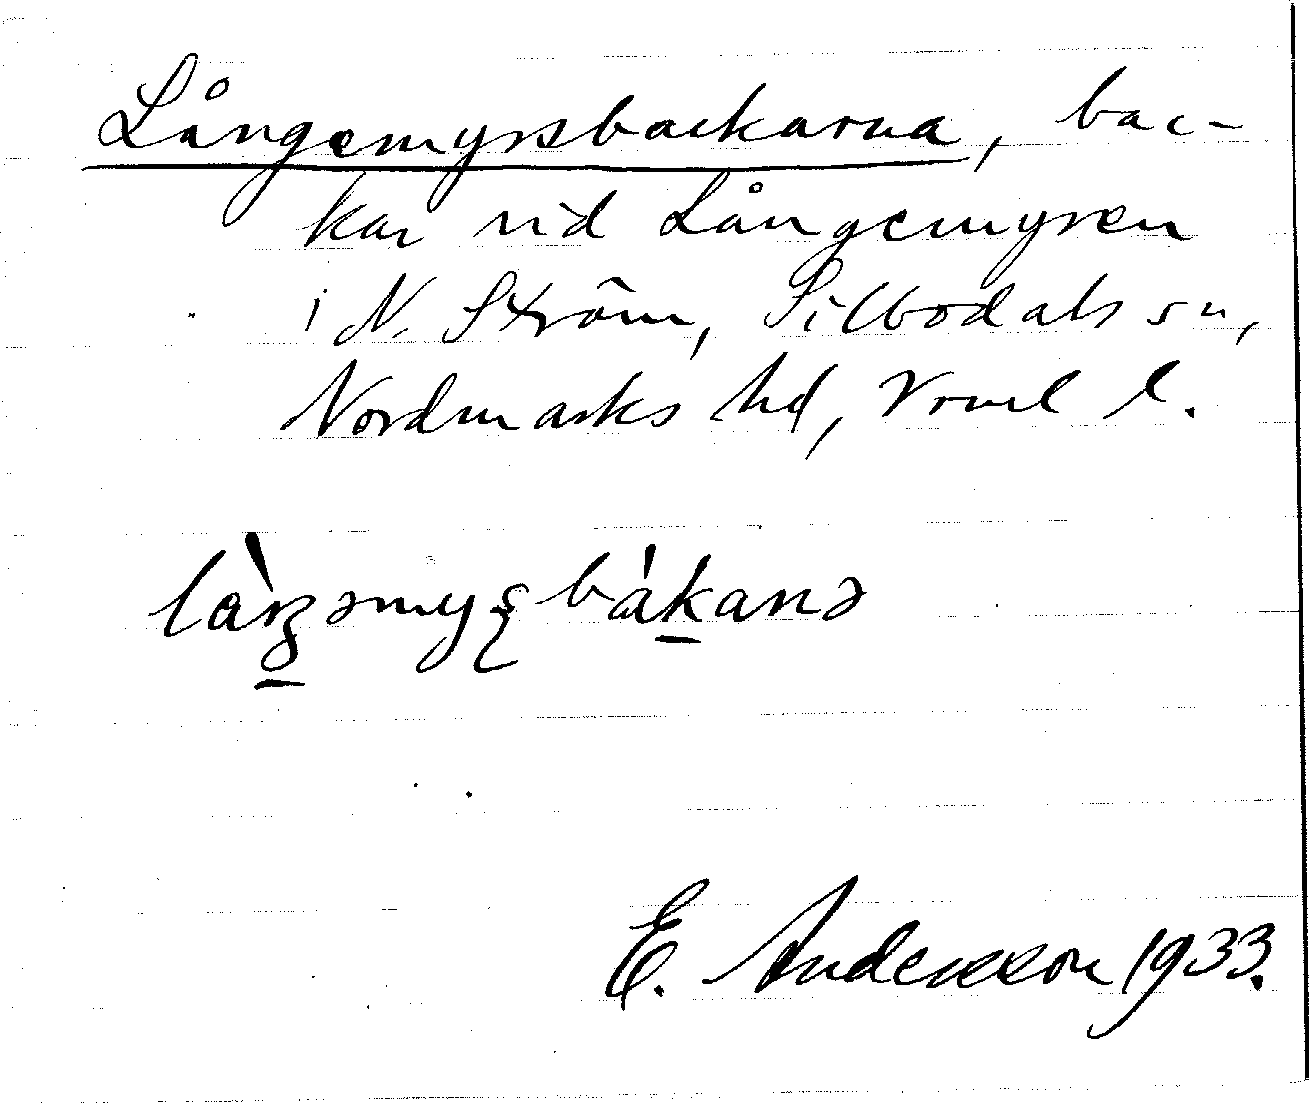 Långemyrsbackarna, bac-
kar vid Långemyren
i N. Ström, Silbodals sn,
Nordmarks hd, Vrml l.
E. Andersson 1933.